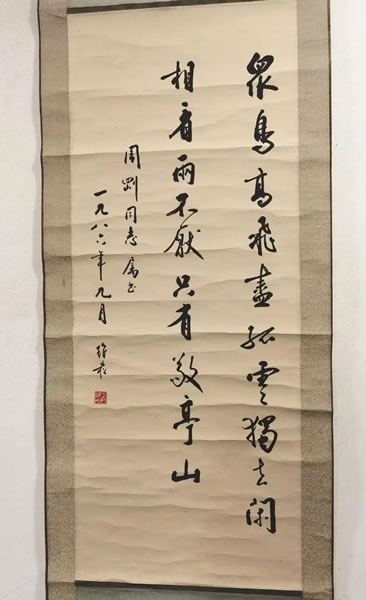 衆鳥高飛盡孤雲獨去閑
相看兩不厭只有敬亭山
周剛同志属书
一九八六年九月